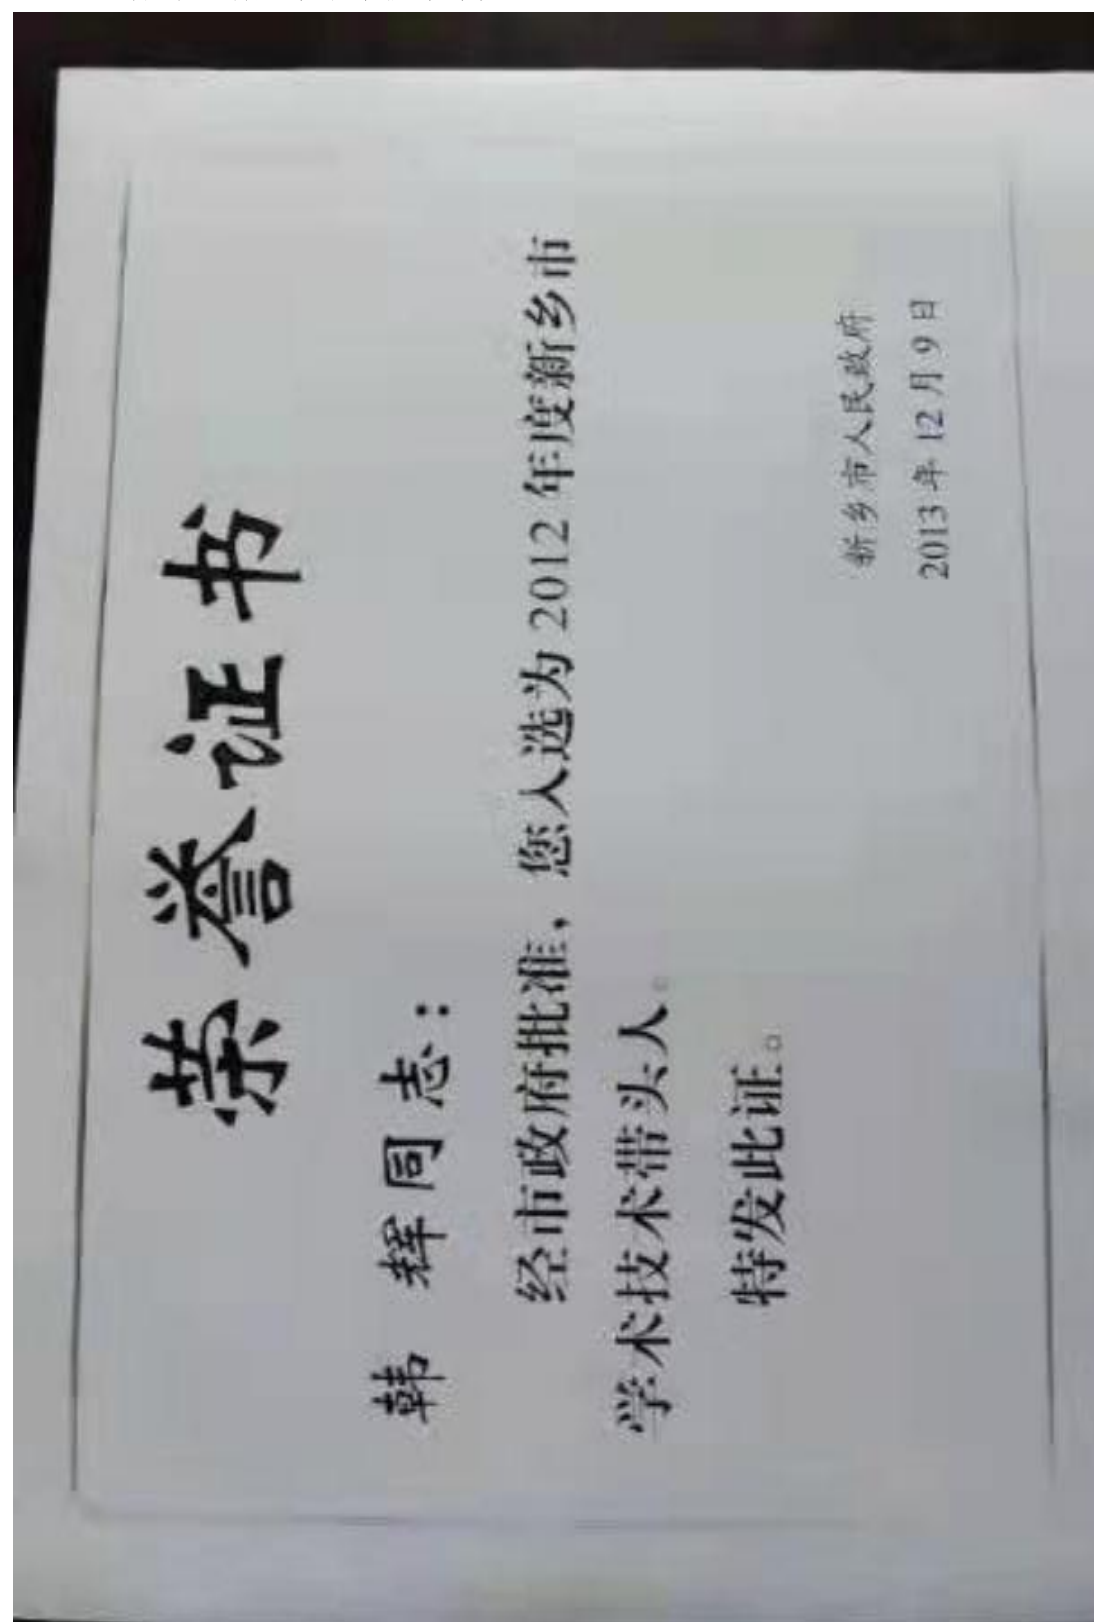 荣誉证书
韩 辉同志：
经市政府批准，您入选为2012年度新乡市
学术技术带头人。
特发此证。
新乡市人民政府
2013年12月9日